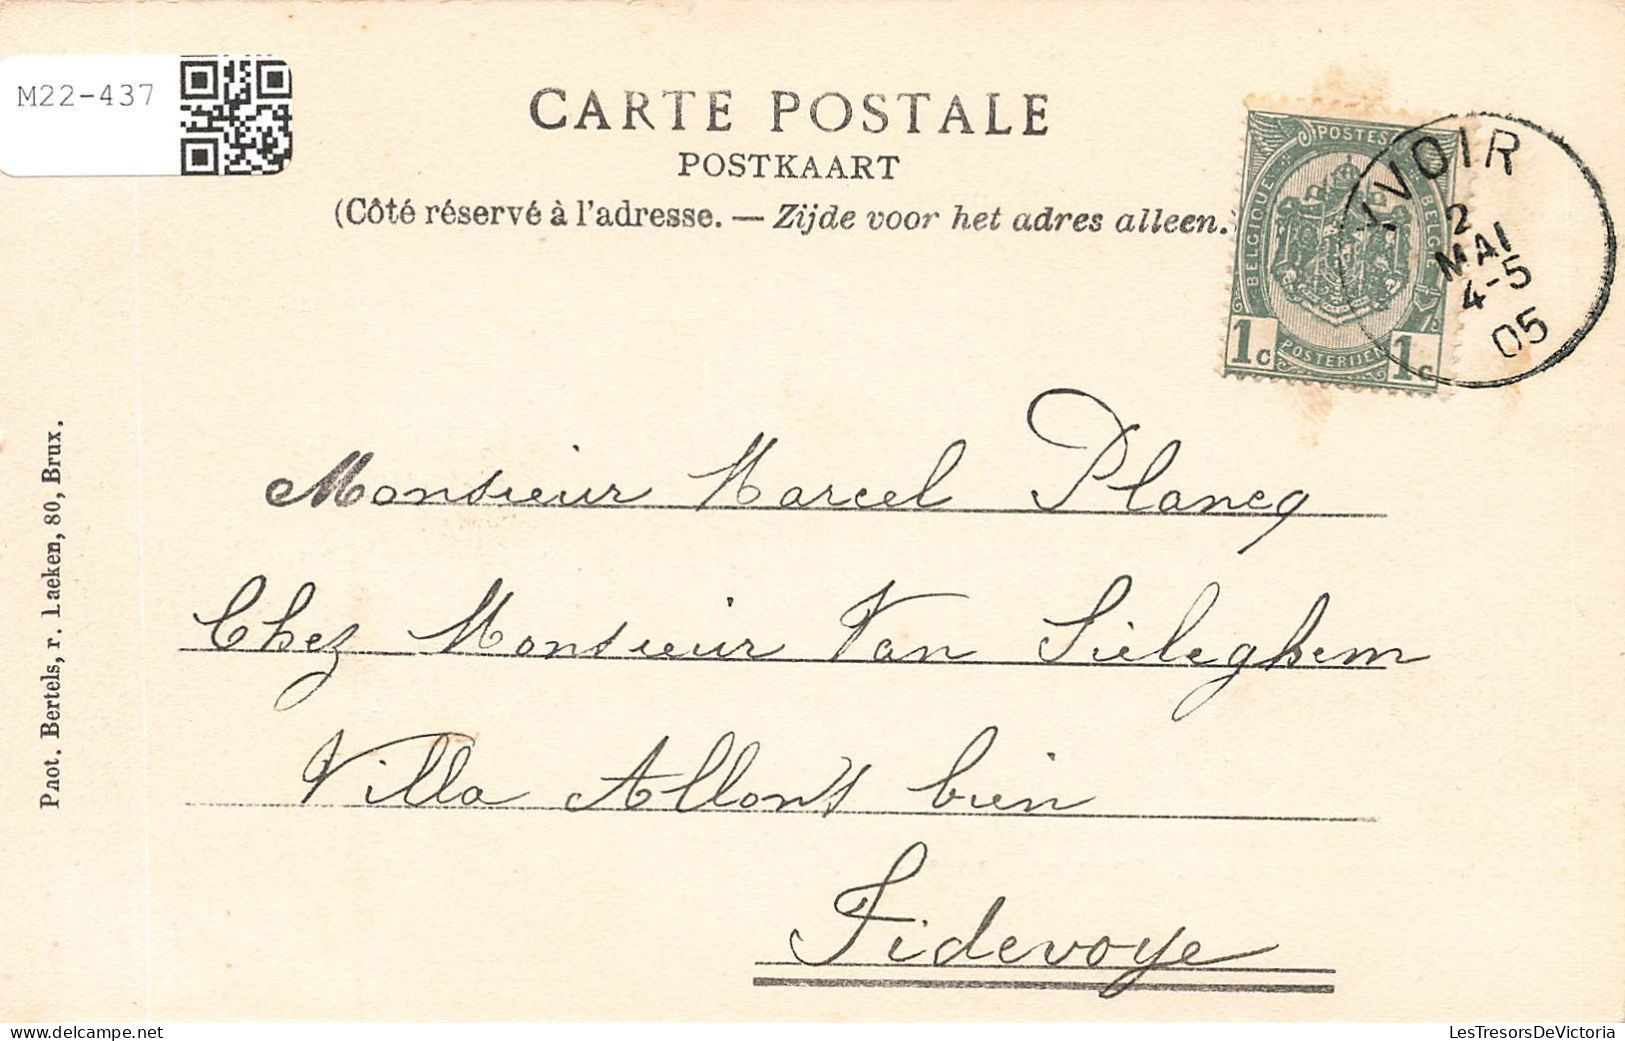 M22-437
CARTE POSTALE
POSTKAART
(Côté réservé à l'adresse. — Zijde voor het adres alleen.
POSTES
BELGIQUE
BELGIË
POSTERIJEN
1c 1c
YVOIR
2
MAI
4-5
05
Monsieur Marcel Plancq
Chez Monsieur Van Sieleghem
Villa Allons bien
Fidevoye
Phot. Bertels, r. Laeken, 80, Brux.
delcampe.net
LesTresorsDeVictoria